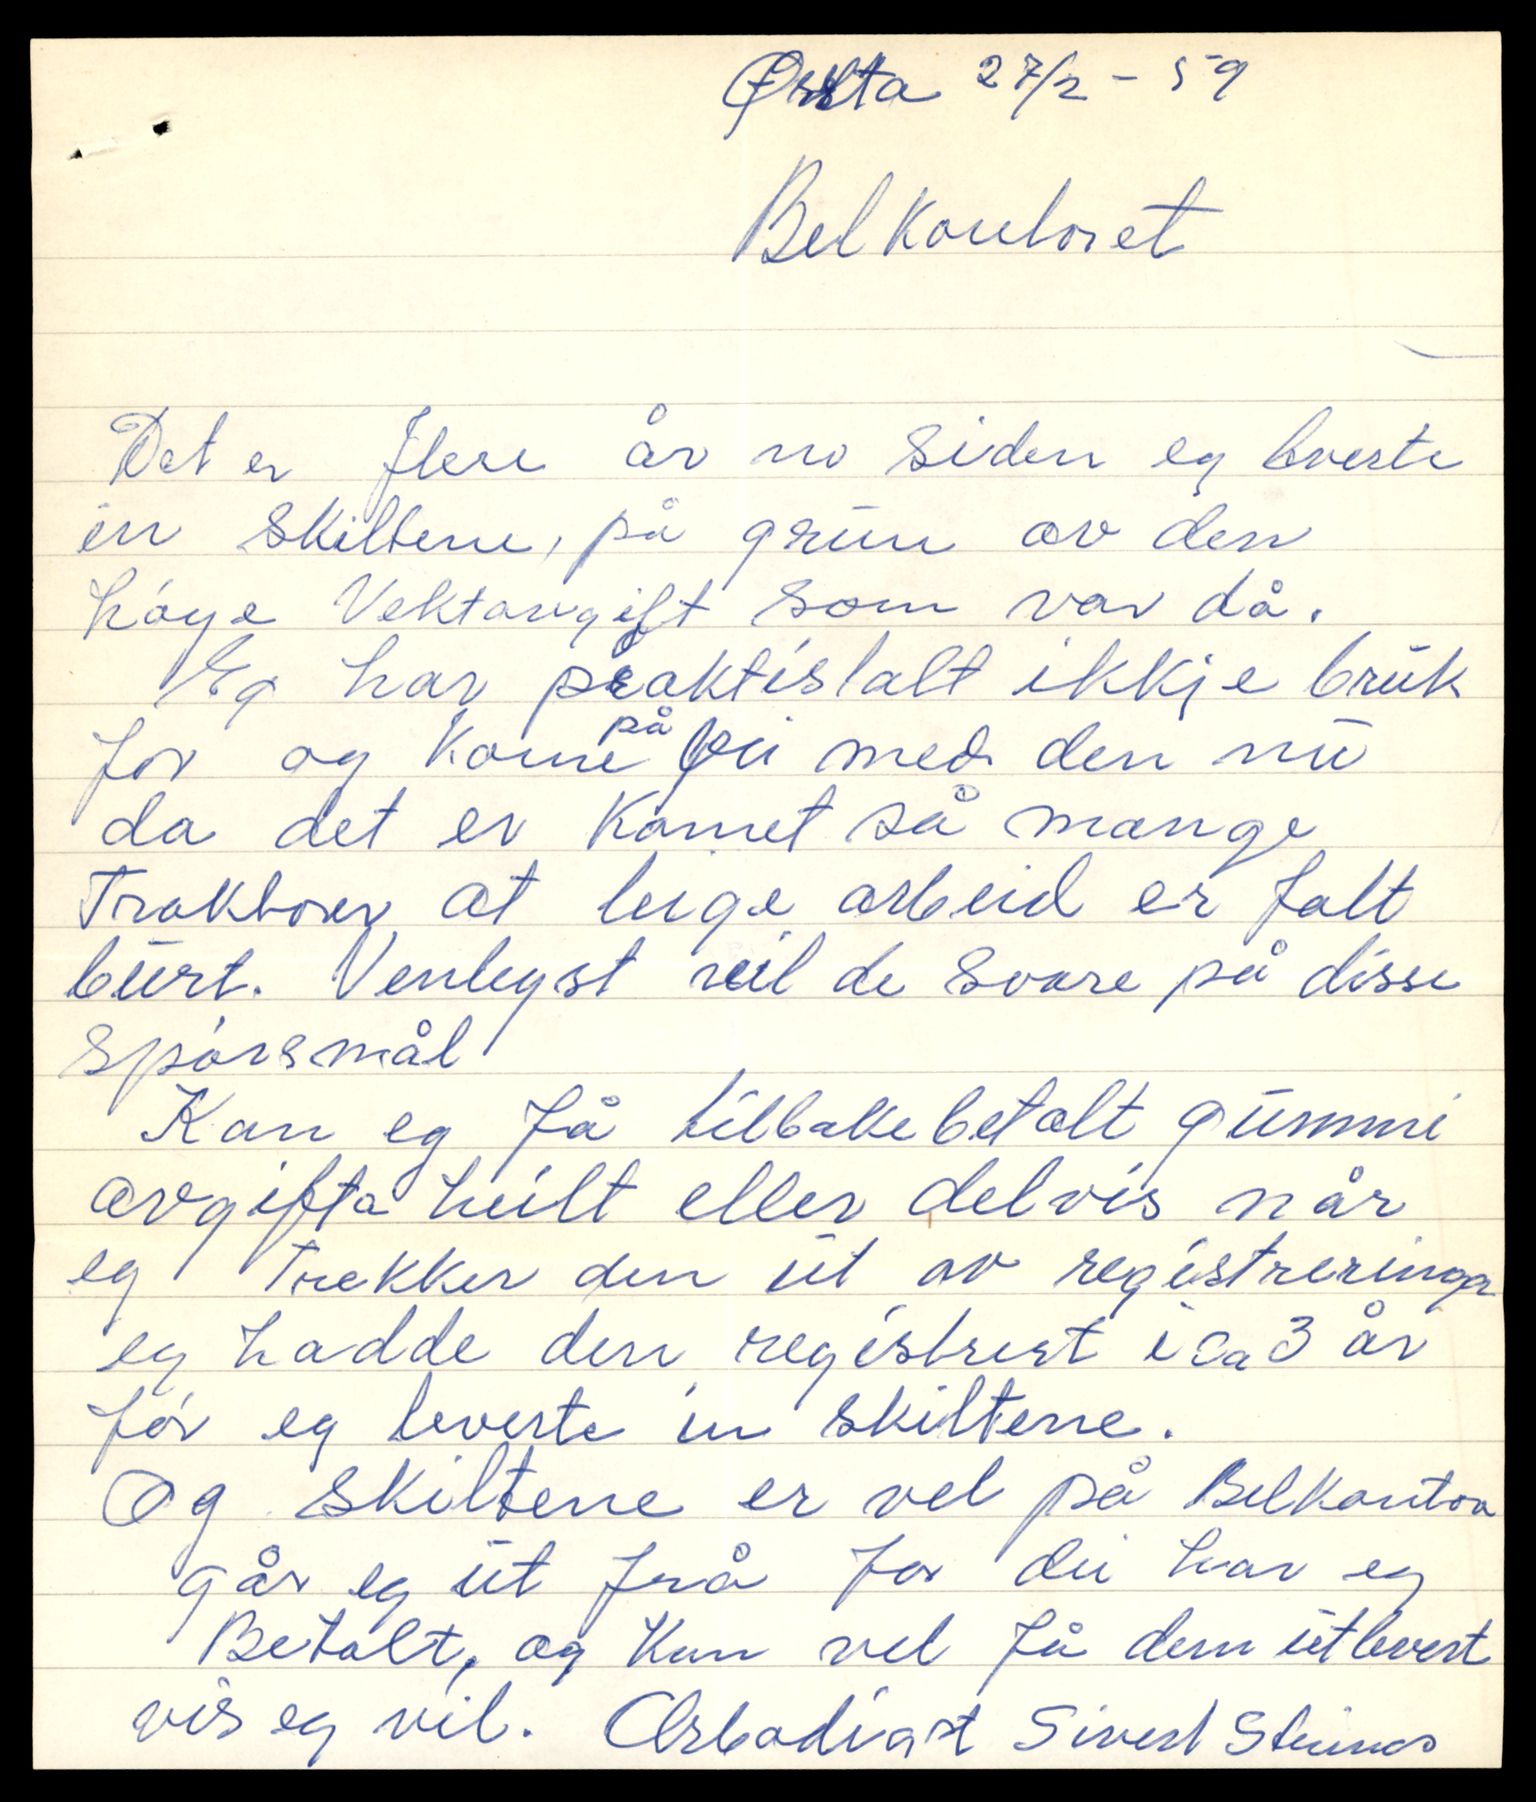 Ørsta 27/2 - 59
Belkontoret
Det er flere år no siden eg leverte
in skiltene, på grun av den
høge Vektavgift som var då.
Eg har praktislalt ikkje bruk
for og kome på vei med den nu
da det er komet så mange
Traktorer at leige arbeid er falt
burt. Venlegst vil de svare på disse
spørsmål
Kan eg få tilbakebetalt gummi
avgifta heilt eller delvis når
eg Trekker den ut av registreringa
eg hadde den registrert i ca 3 år
før eg leverte in skiltene.
Og skiltene er vel på Belkontor
går eg ut frå for dei har eg
Betalt, og kan vel få dem utlevert
vis eg vil. Ærbødigst Sivert